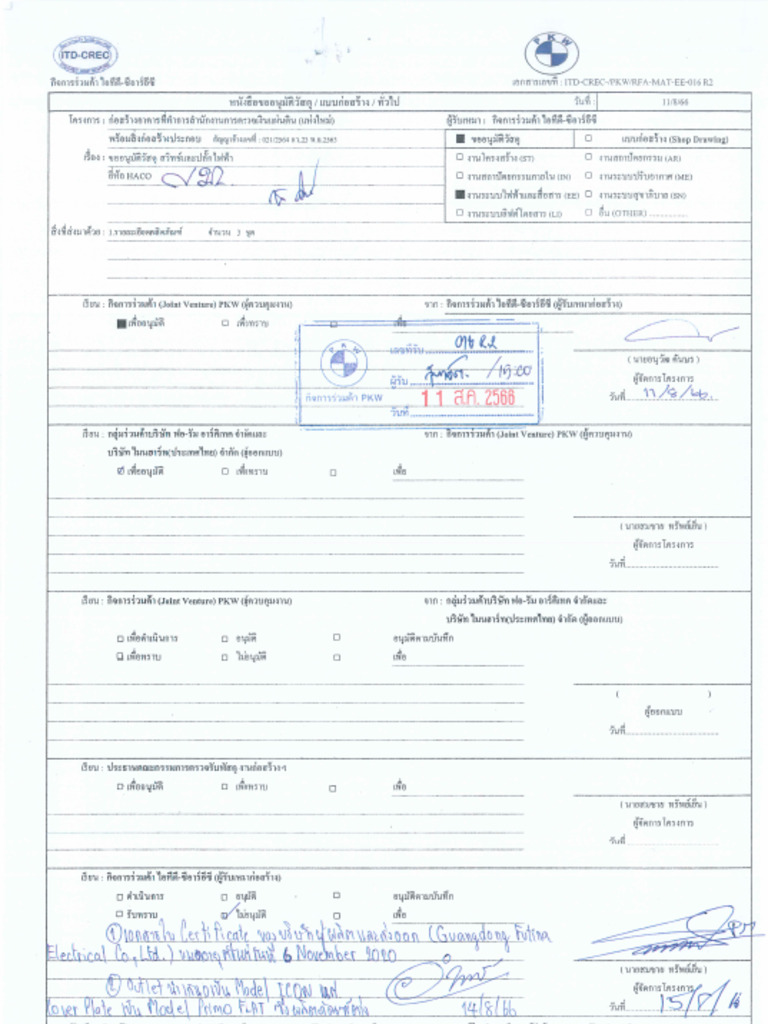 ITD-CREC
PKW
กิจการร่วมค้า ไอทีดี-ซีอาร์อีซี
เอกสารเลขที่ : ITD-CREC-/PKW/RFA-MAT-EE-016 R2
หนังสือขออนุมัติวัสดุ / แบบก่อสร้าง / ทั่วไป
วันที่ :
11/8/66
โครงการ : ก่อสร้างอาคารที่ทำการสำนักงานการตรวจเงินแผ่นดิน (แห่งใหม่)
ผู้รับเหมา : กิจการร่วมค้า ไอทีดี-ซีอาร์อีซี
พร้อมสิ่งก่อสร้างประกอบ
ขออนุมัติวัสดุ
แบบก่อสร้าง (Shop Drawing)
เรื่อง : ขออนุมัติวัสดุ สวิทช์และปลั๊กไฟฟ้า
งานโครงสร้าง (ST)
งานสถาปัตยกรรม (AR)
ยี่ห้อ HACO
งานสถาปัตยกรรมภายใน (IN)
งานระบบปรับอากาศ (ME)
งานระบบไฟฟ้าและสื่อสาร (EE)
งานระบบสุขาภิบาล (SN)
งานระบบลิฟต์โดยสาร (LI)
อื่น (OTHER) ..............
สิ่งที่ส่งมาด้วย : 1.รายละเอียดผลิตภัณฑ์ จำนวน 3 ชุด
เรียน : กิจการร่วมค้า (Joint Venture) PKW (ผู้ควบคุมงาน)
จาก : กิจการร่วมค้า ไอทีดี-ซีอาร์อีซี (ผู้รับเหมาก่อสร้าง)
เพื่ออนุมัติ
เพื่อทราบ
เพื่อ
PKW
เลขที่รับ
ผู้รับ
กิจการร่วมค้า PKW
วันที่ 11 ส.ค. 2566
ผู้จัดการโครงการ
วันที่ 11/8/66
เรียน : กลุ่มร่วมค้าบริษัท ฟอ-รัม อาร์คิเทค จำกัดและ
จาก : กิจการร่วมค้า (Joint Venture) PKW (ผู้ควบคุมงาน)
บริษัท ไมนฮาร์ท(ประเทศไทย) จำกัด (ผู้ออกแบบ)
เพื่ออนุมัติ
เพื่อทราบ
เพื่อ
( นายสมชาย ทรัพย์เย็น )
ผู้จัดการโครงการ
วันที่
เรียน : กิจการร่วมค้า (Joint Venture) PKW (ผู้ควบคุมงาน)
จาก : กลุ่มร่วมค้าบริษัท ฟอ-รัม อาร์คิเทค จำกัดและ
บริษัท ไมนฮาร์ท(ประเทศไทย) จำกัด (ผู้ออกแบบ)
เพื่อดำเนินการ
อนุมัติ
อนุมัติตามบันทึก
เพื่อทราบ
ไม่อนุมัติ
เพื่อ
( )
ผู้ออกแบบ
วันที่
เรียน : ประธานคณะกรรมการตรวจรับพัสดุ งานก่อสร้างฯ
เพื่ออนุมัติ
เพื่อทราบ
เพื่อ
( นายสมชาย ทรัพย์เย็น )
ผู้จัดการโครงการ
วันที่
เรียน : กิจการร่วมค้า ไอทีดี-ซีอาร์อีซี (ผู้รับเหมาก่อสร้าง)
ดำเนินการ
อนุมัติ
อนุมัติตามบันทึก
รับทราบ
ไม่อนุมัติ
เพื่อ
① เอกสารใบ Certificate ของบริษัทผู้ผลิตและส่งออก (Guangdong Futina
Electrical Co., Ltd.) หมดอายุ 6 November 2020
② Outlet นำเสนอเป็น Model ICON แต่
Cover Plate เป็น Model Primo FLAT
14/8/66
( นายสมชาย ทรัพย์เย็น )
ผู้จัดการโครงการ
วันที่ 15/8/66